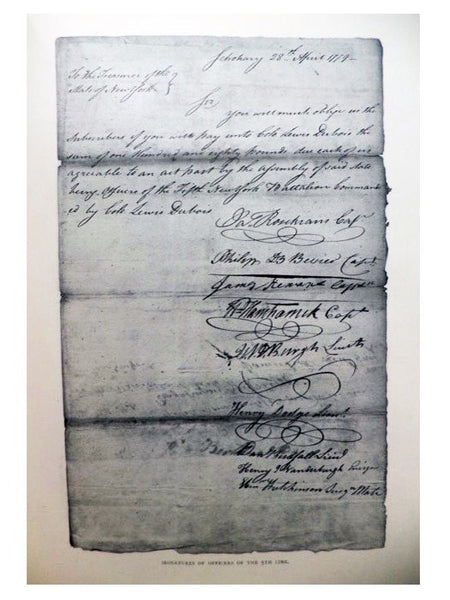 Schohary 28th April 1779
To the Treasurer of the
State of New York
Sir
You will much oblige us the
Subscribers if you will pay unto Colo Lewis Dubois the
sum of one Hundred and eighty pounds due each of us
agreable to an act past by the assembly of said state
being officers of the Fifth New York Battalion Command
ed by Colo Lewis Dubois
Jas Rosekrans Capt
Philip DBevier Capt
James Stewart Capt
H Vanderburgh Lieut
Henry Dodge Lieut
Dan Windfall Lieut
Henry Vanderburgh Ensign
Wm Hutchinson Surgn Mate
SIGNATURES OF OFFICERS OF THE 5TH LINE.